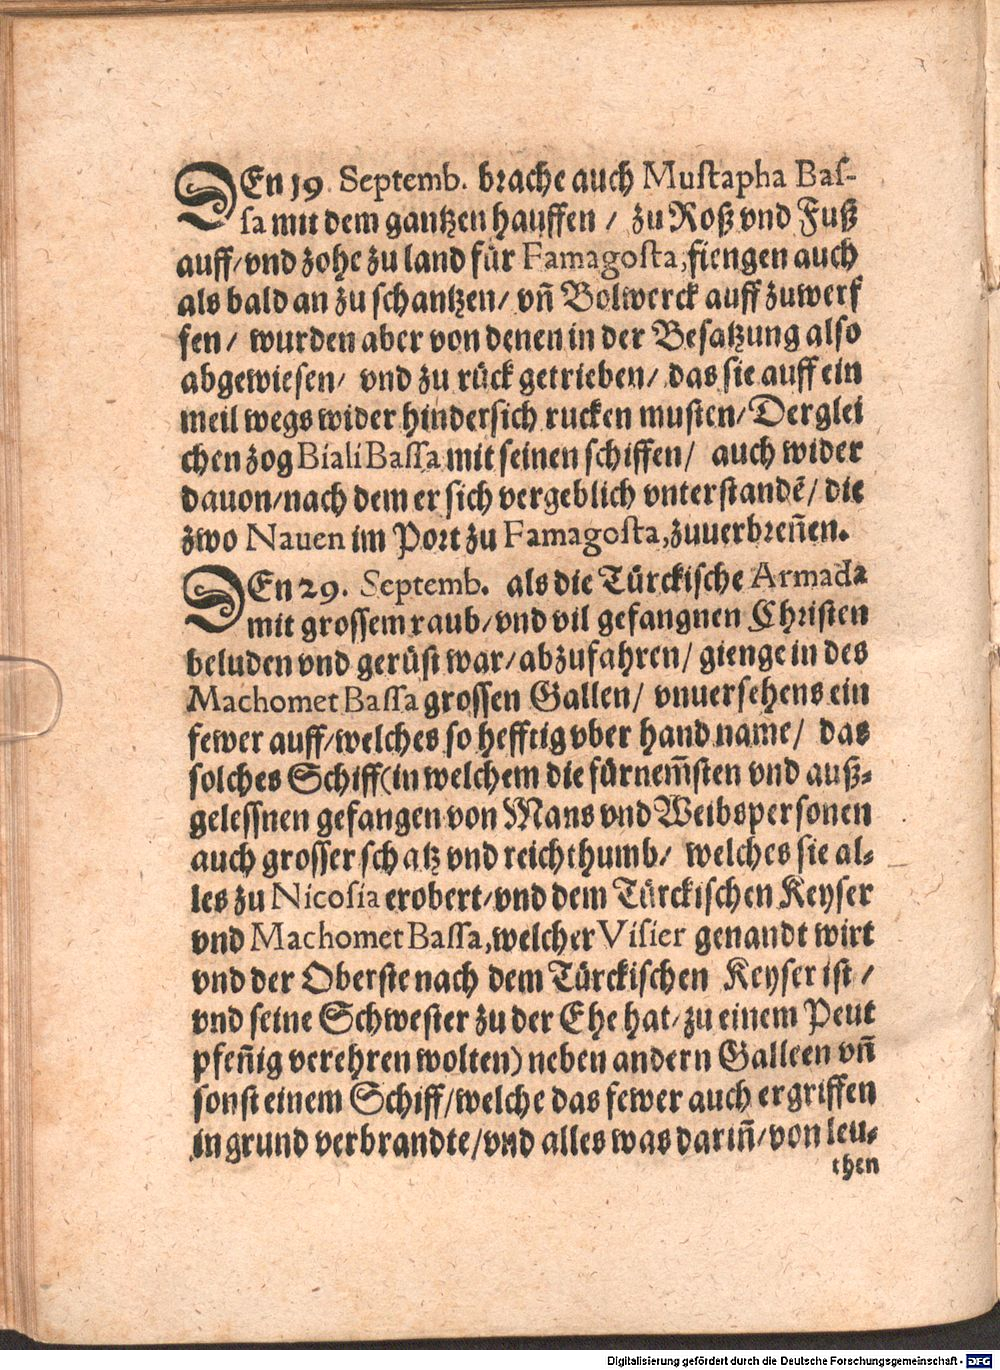 DEn 19. Septemb. brache auch Mustapha Bas-
sa mit dem gantzen hauffen / zu Roß vnd Fuß
auff/vnd zohe zu land für Famagosta, fiengen auch
als bald an zu schantzen/ vñ Bolwerck auff zuwerf
fen/ wurden aber von denen in der Besatzung also
abgewiesen/ vnd zu rück getrieben/ das sie auff ein
meil wegs wider hindersich rucken musten/ Derglei
chen zog Biali Bassa mit seinen schiffen/ auch wider
dauon/nach dem er sich vergeblich vnterstandẽ/ die
zwo Nauen im Port zu Famagosta, zuuerbreñen.
DEn 29. Septemb. als die Türckische Armada
mit grossem raub/vnd vil gefangnen Christen
beluden vnd gerüst war/abzufahren/ gienge in des
Machomet Bassa grossen Gallen/ vnuersehens ein
fewer auff/welches so hefftig vber hand name/ das
solches Schiff(in welchem die fürnem̃sten vnd auß-
gelessnen gefangen von Mans vnd Weibspersonen
auch grosser schatz vnd reichthumb/ welches sie al-
les zu Nicosia erobert/vnd dem Türckischen Keyser
vnd Machomet Bassa, welcher Visier genandt wirt
vnd der Oberste nach dem Türckischen Keyser ist /
vnd seine Schwester zu der Ehe hat/zu einem Peut
pfeñig verehren wolten) neben andern Galleen vñ
sonst einem Schiff/welche das fewer auch ergriffen
in grund verbrandte/vnd alles was dariñ/von leu-
then
Digitalisierung gefördert durch die Deutsche Forschungsgemeinschaft - DFG